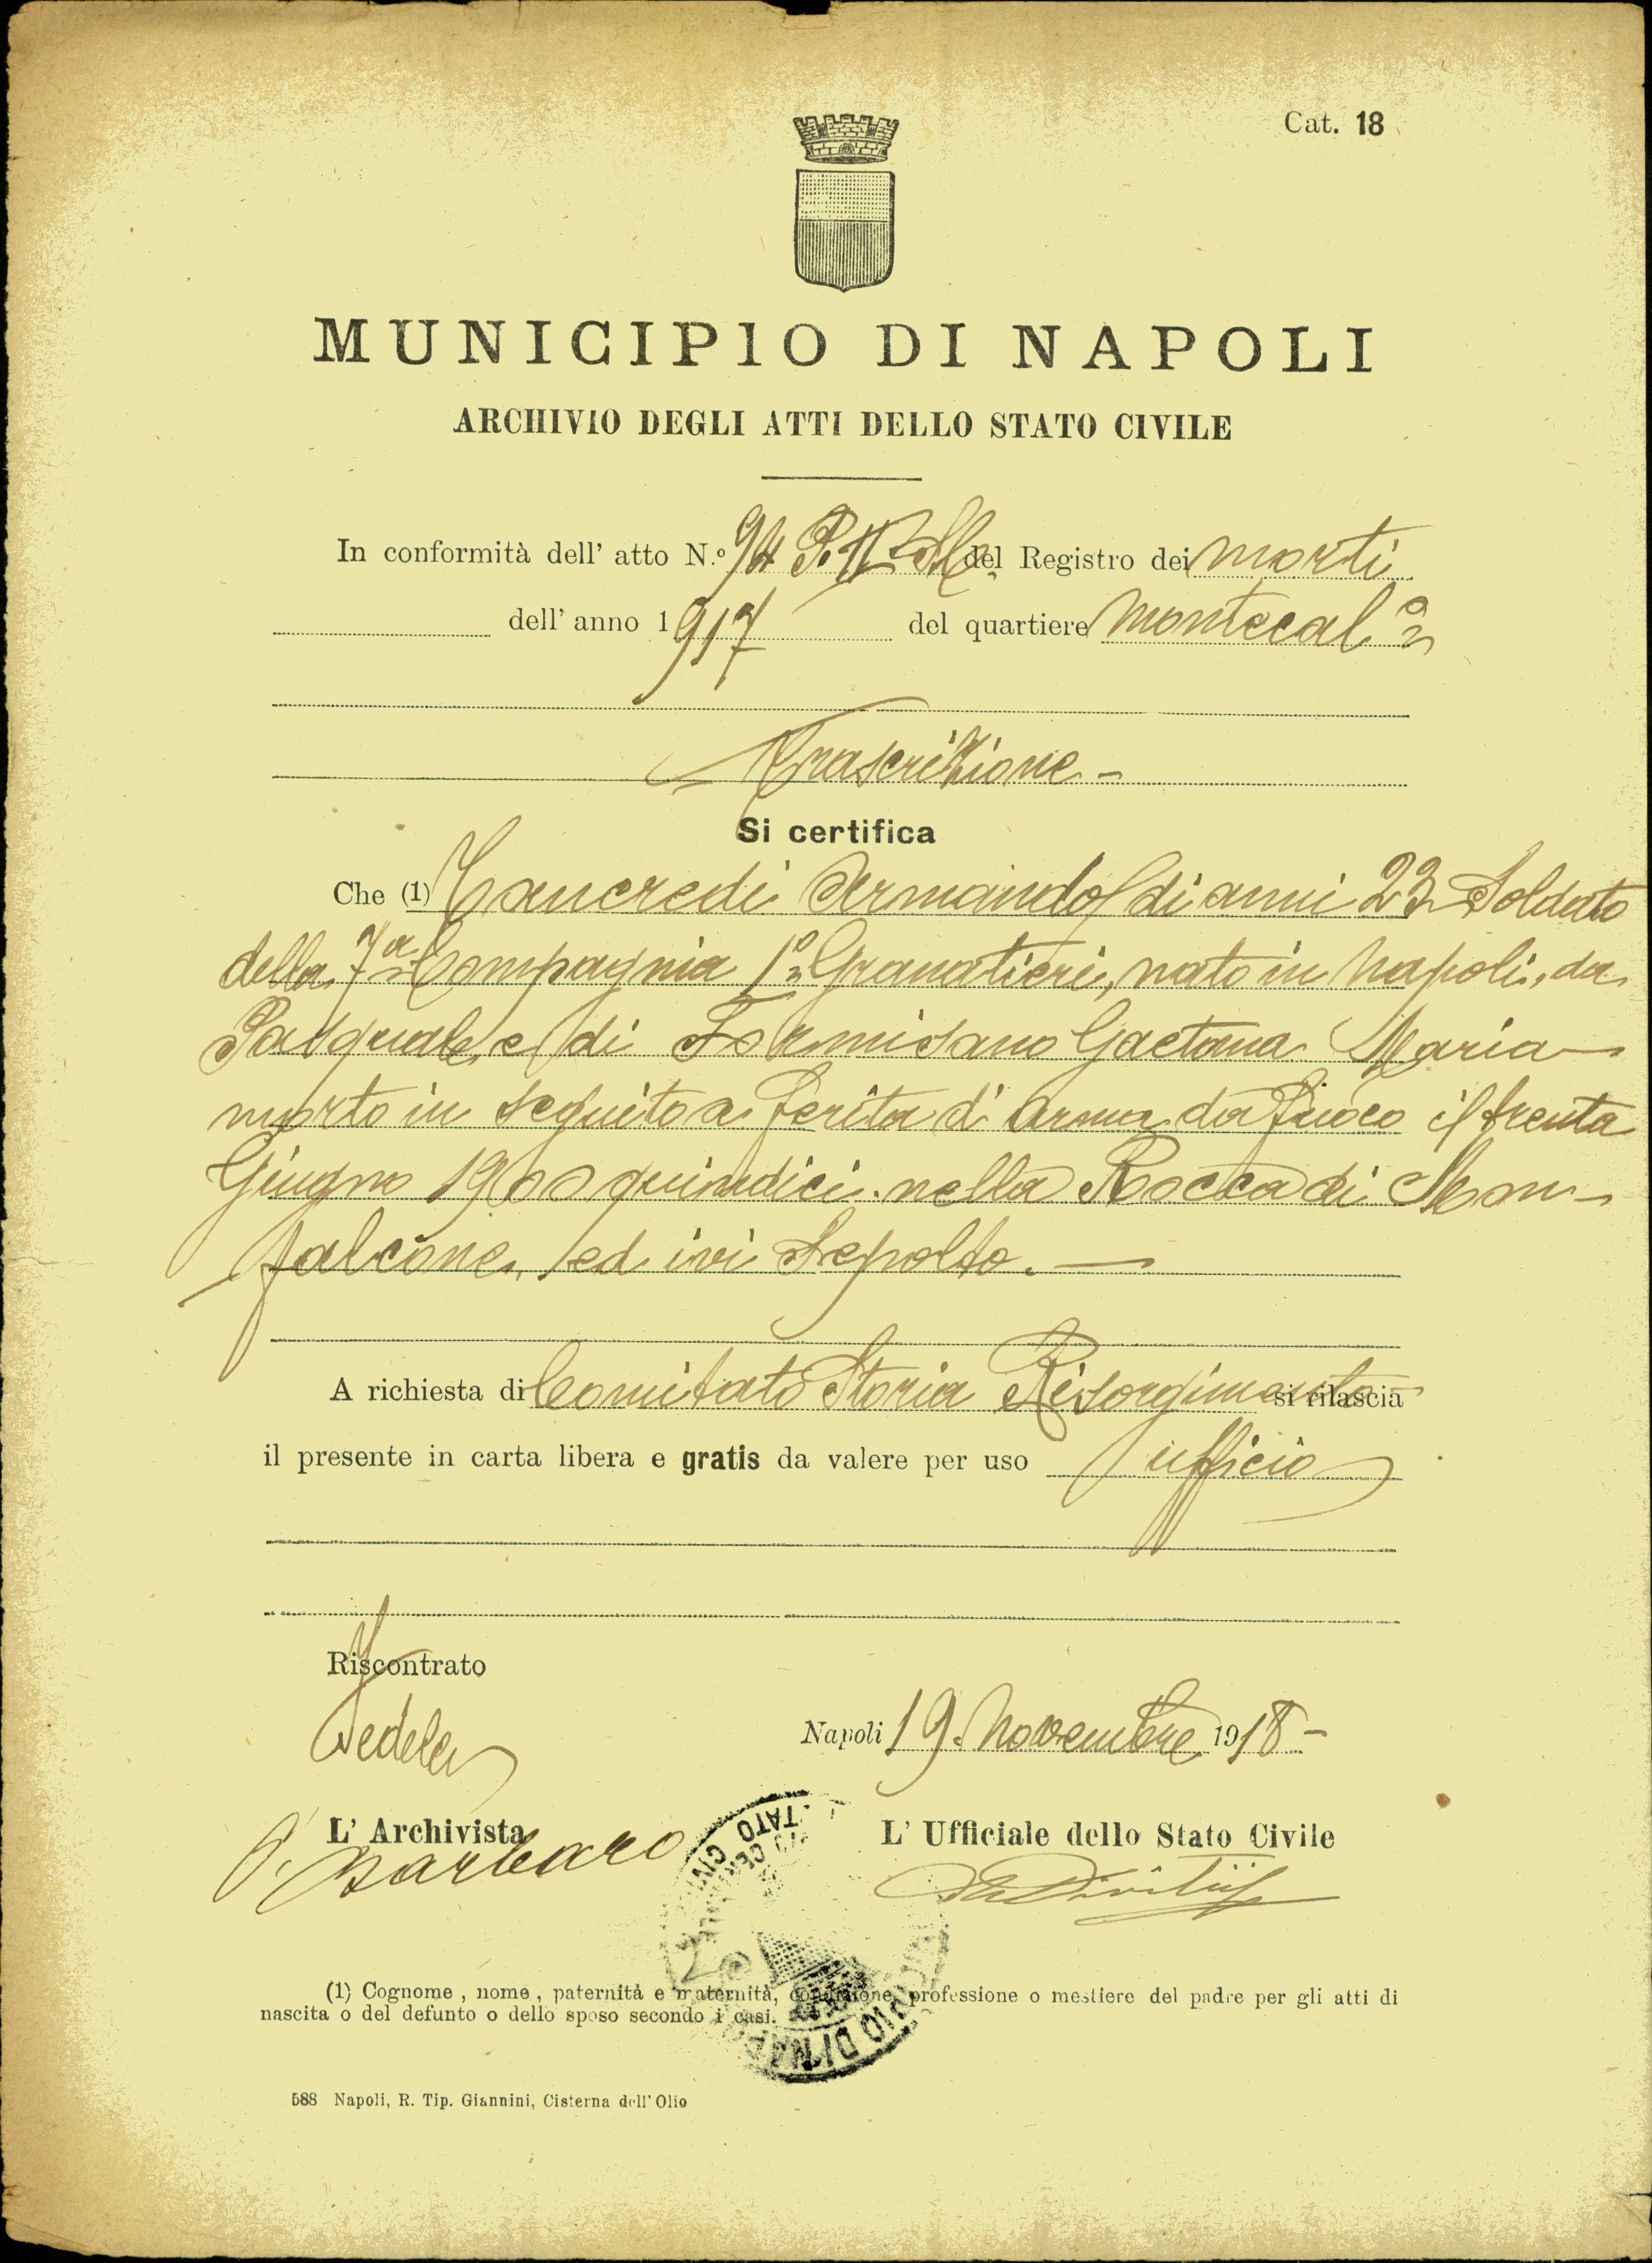 Cat. 18
MUNICIPIO DI NAPOLI
ARCHIVIO DEGLI ATTI DELLO STATO CIVILE
In conformità dell' atto N.o 94 P. del Registro dei morti
dell' anno 1917 del quartiere Montecal.o
Trascrizione -
Si certifica
Che (1) Tancredi Armando di anni 23 Soldato
della 7a Compagnia 1o Granatieri, nato in Napoli, da
Pasquale e di Formisano Gaetana Maria
morto in seguito a ferita d'arma da fuoco il trenta
Giugno 1900 quindici nella Rocca di Mon-
falcone, ed ivi Sepolto. —
A richiesta di Comitato Storia Risorgimento si rilascia
il presente in carta libera e gratis da valere per uso ufficio
Riscontrato
Fedele
Napoli 19 Novembre 1918 -
L' Archivista
Barbaro
L' Ufficiale dello Stato Civile
(1) Cognome, nome, paternità e maternità, condizione, professione o mestiere del padre per gli atti di
nascita o del defunto o dello sposo secondo i casi.
588 Napoli, R. Tip. Giannini, Cisterna dell' Olio